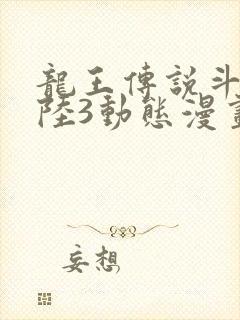 龍王傳說斗
陸3動態漫畫
妄想